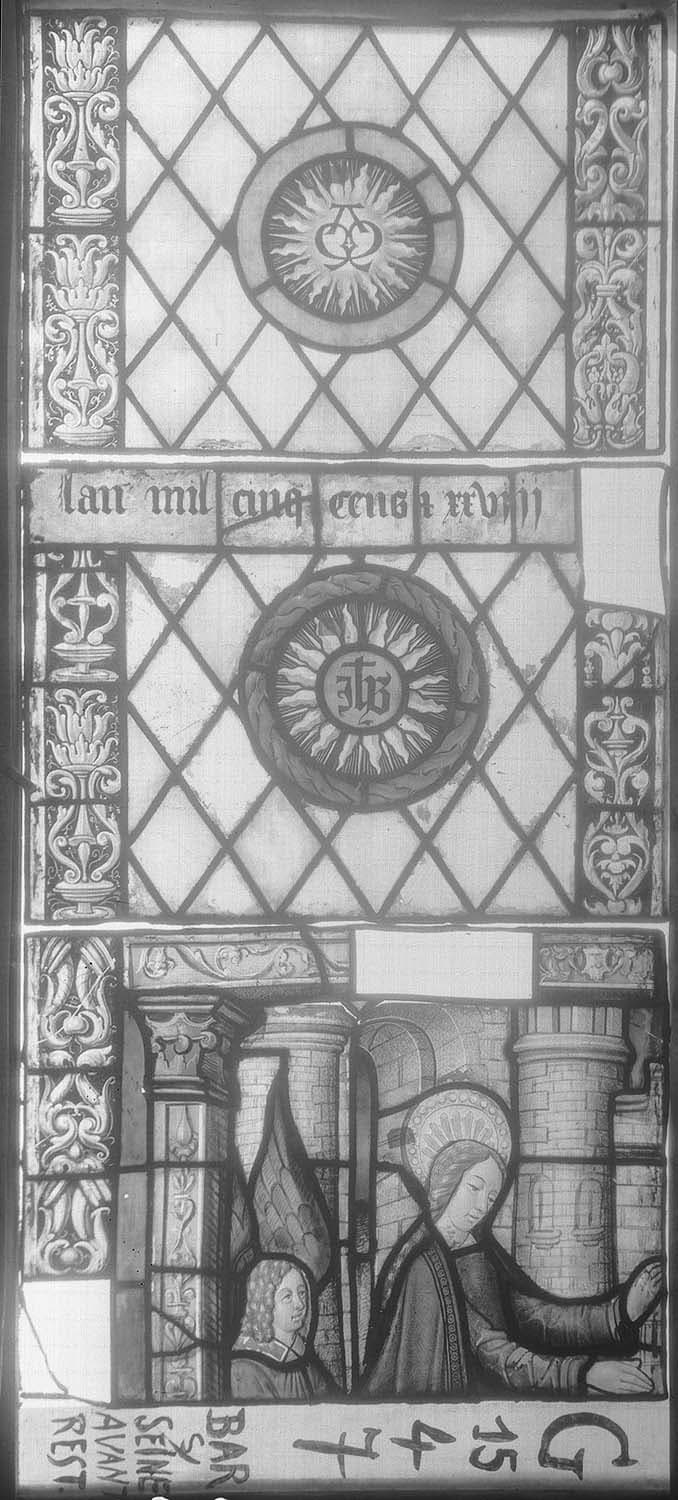 lan mil cinq cens & xxviii
ihs
BAR
S/
SEINE
AVANT
REST.
7
4
15
G